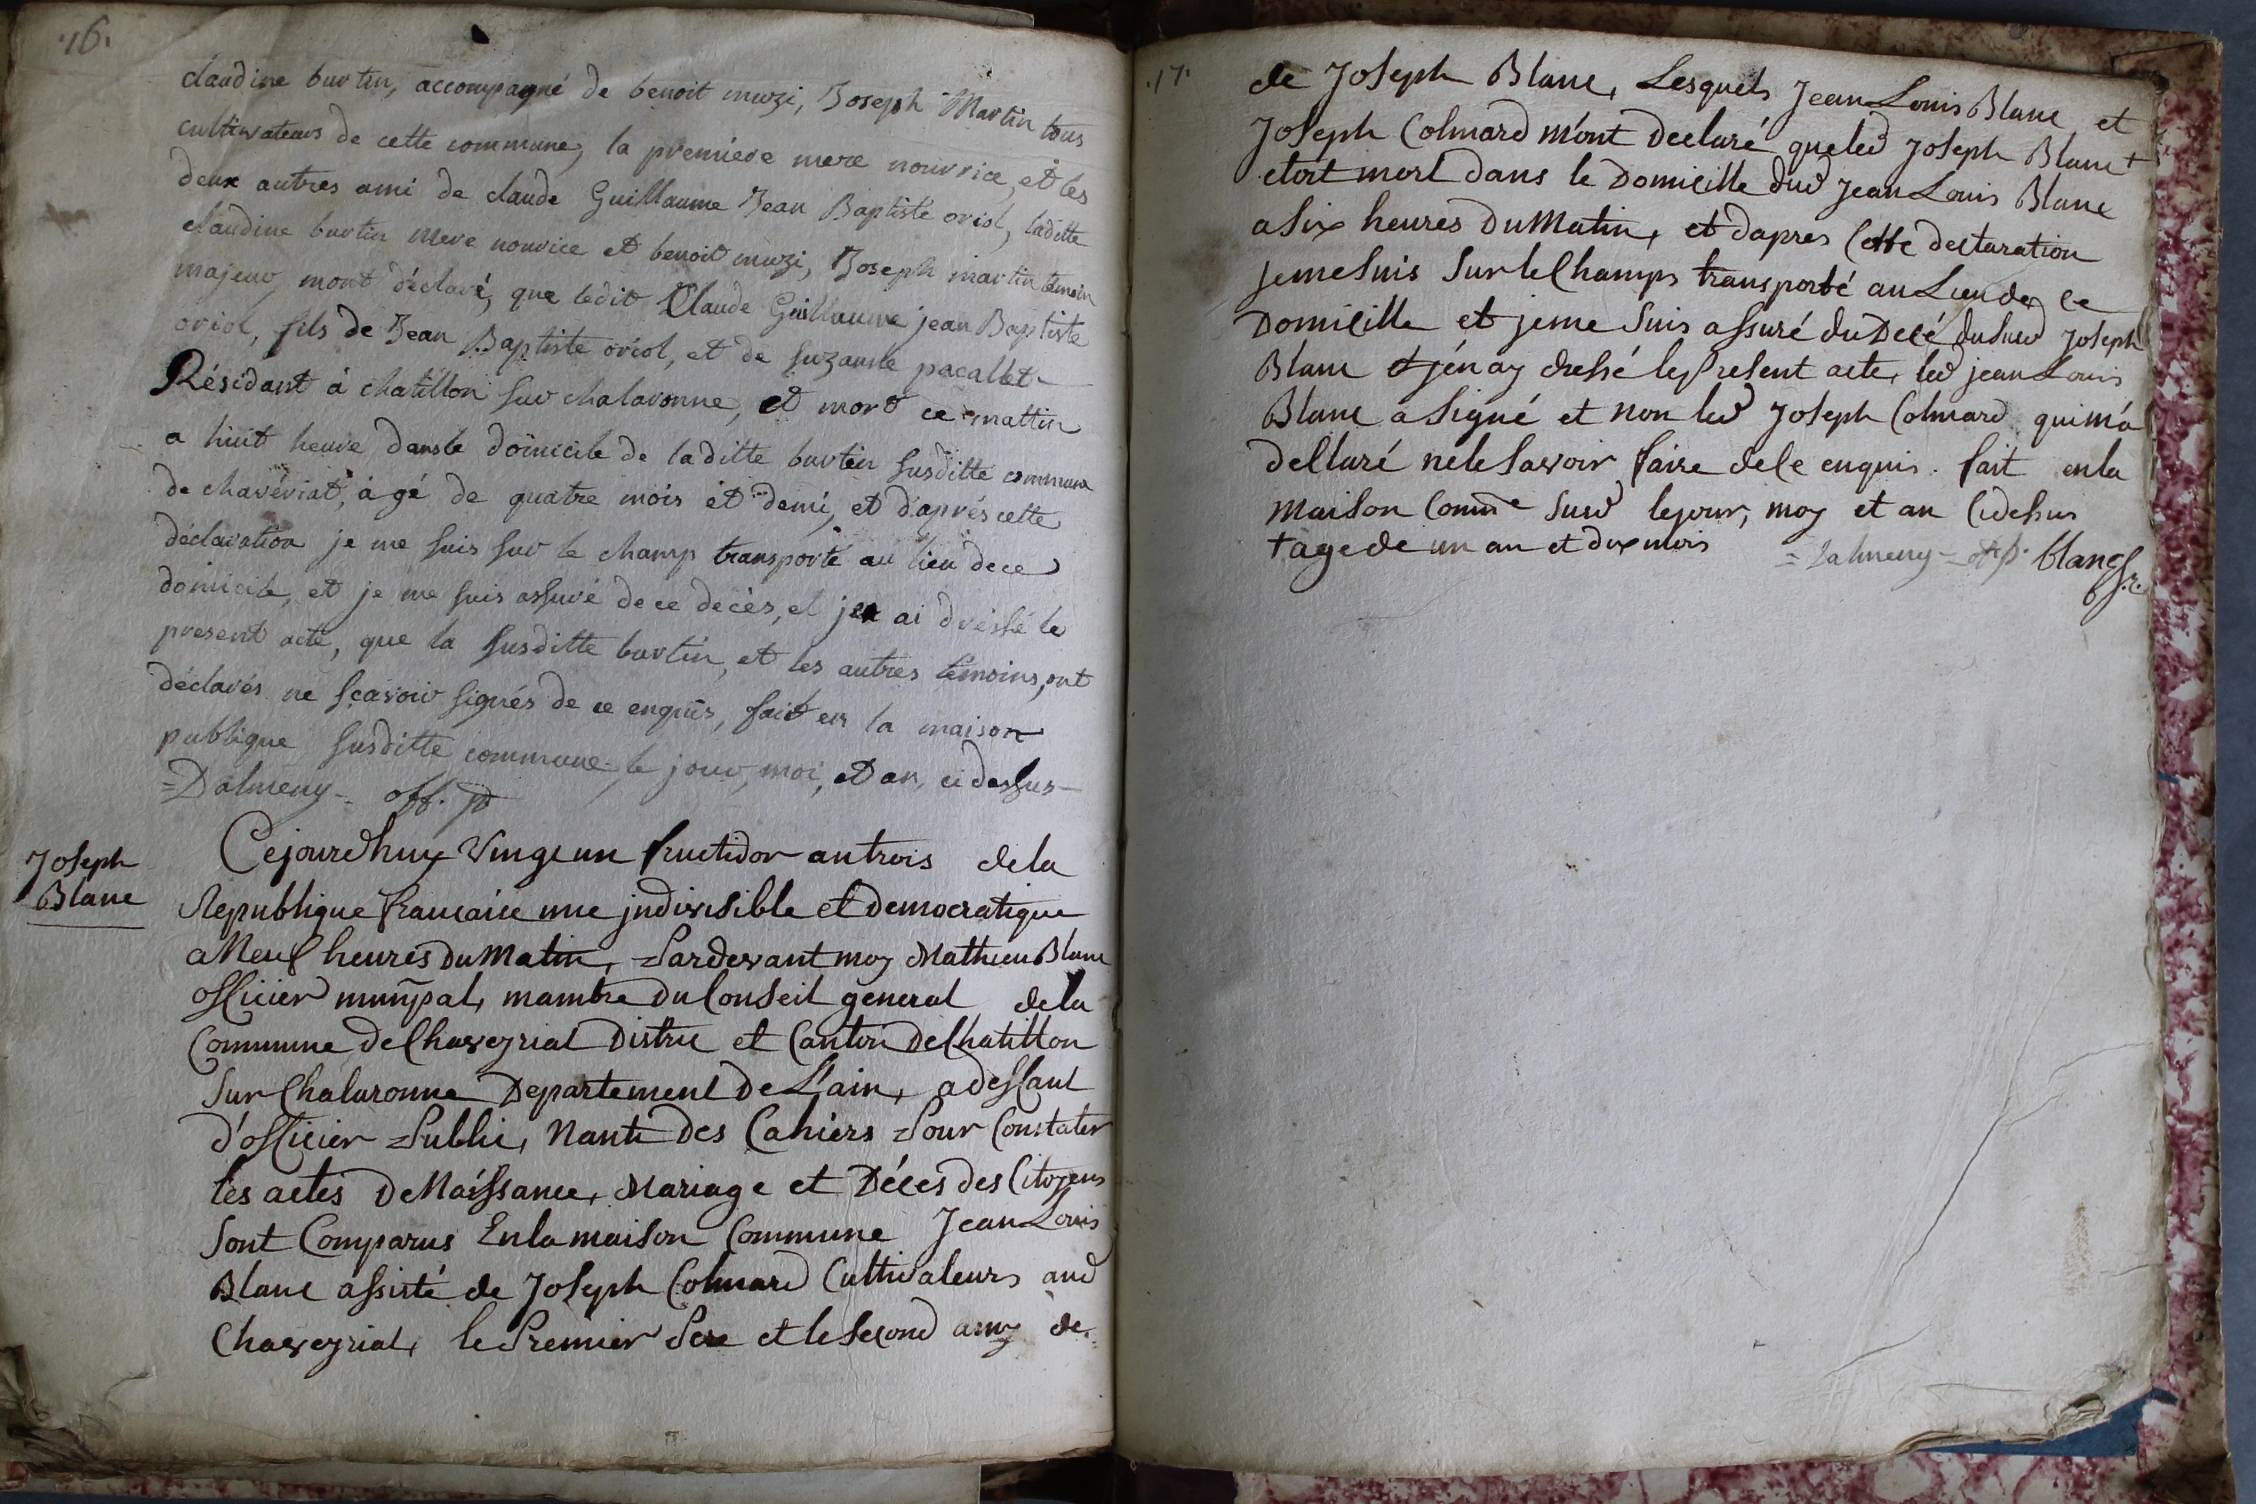 .16.
claudine burtin, accompagné de benoit muzi, Joseph Martin tous
cultivateurs de cette commune, la premiere mere nourrice, et les
deux autres ami de claude Guillaume Jean Baptiste oriol, laditte
claudine burtin mere nourice et benoit muzi, Joseph martin temoin
majeur, mont déclaré, que ledit Claude Guillaume jean Baptiste
oriol, fils de Jean Baptiste oriol, et de suzanne pacallet
Résidant à chatillon sur chalaronne, et mort ce mattin
a huit heure dans le domicile de laditte burtin susditte commune
de chavériat, àgé de quatre mois et demi, et d'aprés cette
déclaration je me suis sur le champ transporté au lieu de ce
domicile, et je me suis assuré de ce decès, et jen ai dressé le
present acte, que la susditte burtin, et les autres témoins, ont
déclarés ne sçavoir signés de ce enquis, fait en la maison
publique susditte commune le jour, moi, et an, ci dessus
=Dalmeny= off. p
Joseph
Blanc
Cejourdhuy Vingt un fructidor an trois de la
Republique francaise une jndivisible et democratique
a Neuf heures du Matin, Pardevant moy Mathieu Blanc
officier munpal, mambre du Conseil general de la
Commune de Chaveyriat Distric et Canton de Chatillon
sur Chalaronne Departement de L'ain, a deffaut
d'officier Public, Nanti des Cahiers Pour Constater
les actes De Naissance, Mariage et Déces des Citoyens
sont Comparus En la maison Commune Jean Louis
Blanc assisté de Joseph Colmard Cultivateurs aud
Chaveyriat, le Premier Pere et le second amy de
.17.
de Joseph Blanc, Lesquels Jean Louis Blanc et
Joseph Colmard m'ont declaré que led Joseph Blanc +
etoit mort dans le Domicille dud Jean Louis Blanc
a six heures du Matin, et dapres Cette declaration
je me suis sur le Champs transporté au Lieu de ce
Domicille et je me suis assuré du Decé dusud Joseph
Blanc et j'en ay dressé le Present acte, led jean Louis
Blanc a signé et non led Joseph Colmard qui m'a
declaré ne le savoir faire de Ce enquis. fait en la
maison Comne susd le jour, moy et an Cidessus
+ age de un an et dix mois =Dalmeny= off p. blanc